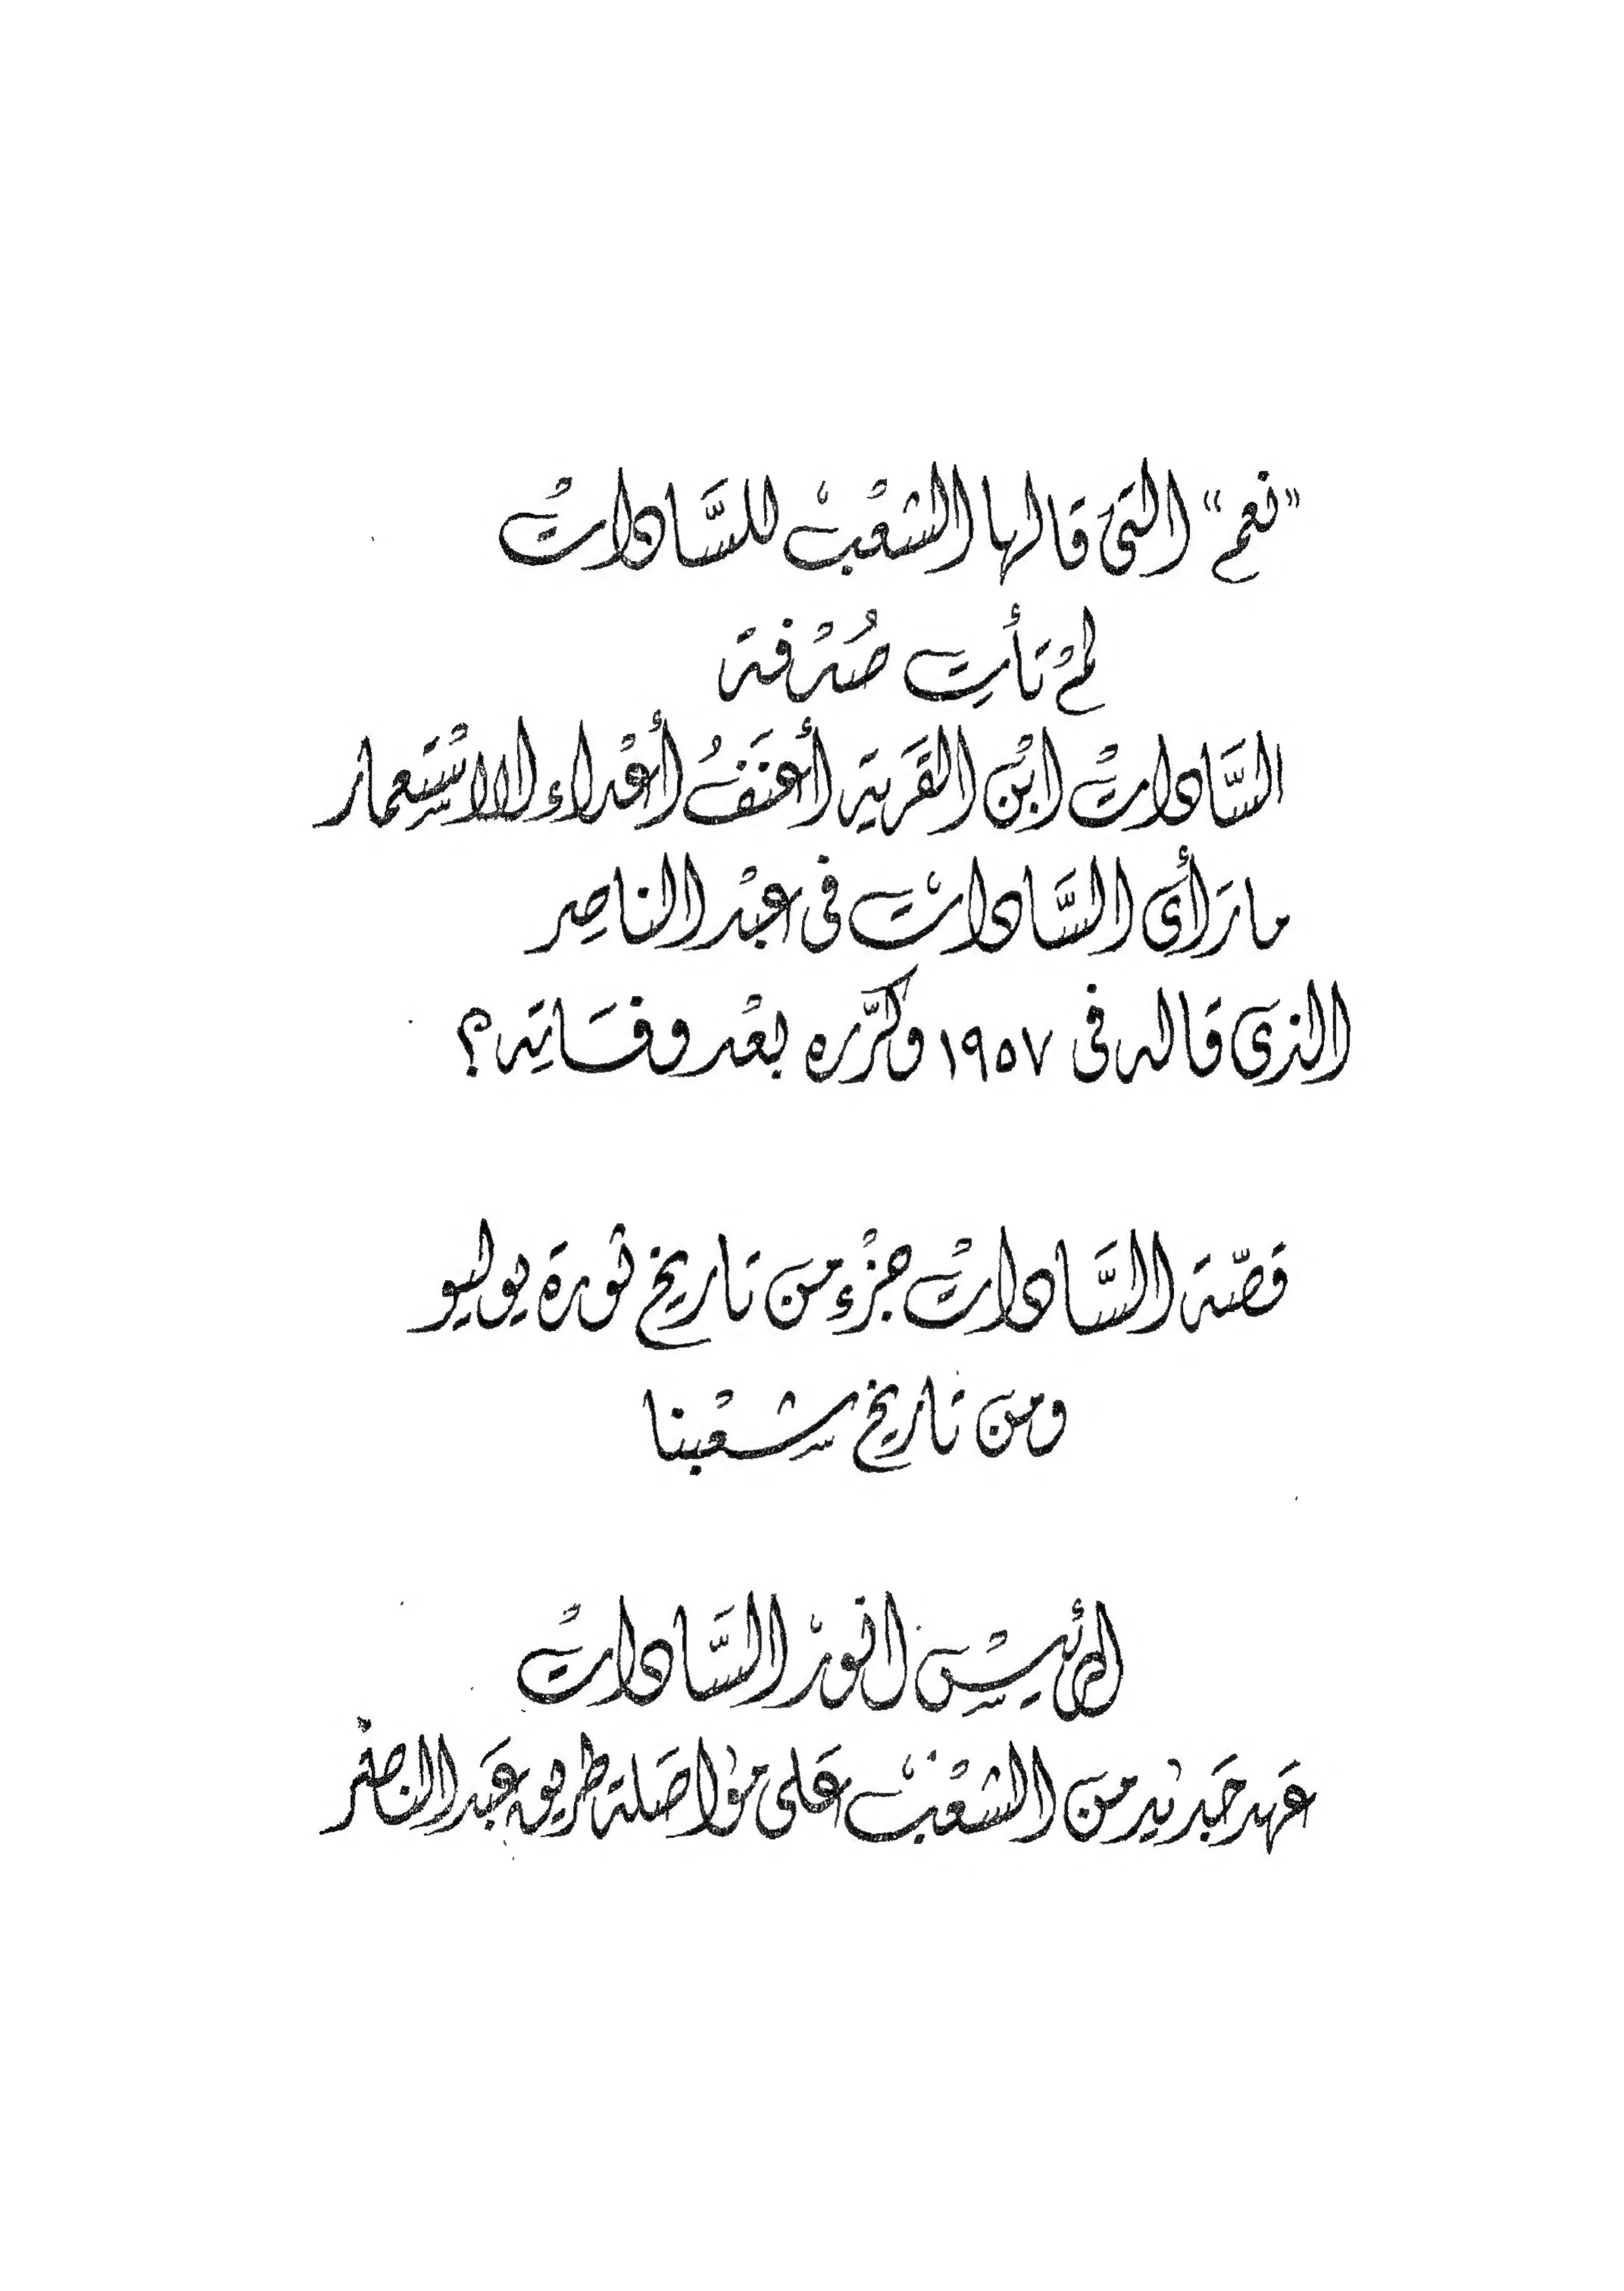 "نعم" التى قالها الشعْبْ للسَّادات
لمْ تأتِ صُدْفة
السَّاداتْ ابْن القَرية أعنَفُ أعْداء الاسْتِعمار
ما رَأى السَّادات فى عبْد الناصِر
الذى قاله فى ١٩٥٧ وكرَّره بعْد وفَاتِه ؟
قصّة السَّاداتْ جزْء من تاريخ ثورة يوليو
ومن تاريخ شعْبنا
الرئيسْ انورْ السَّاداتْ
عَهد جَديد من الشعْبْ عَلى موَاصَلة طريق عَبد الناصْر